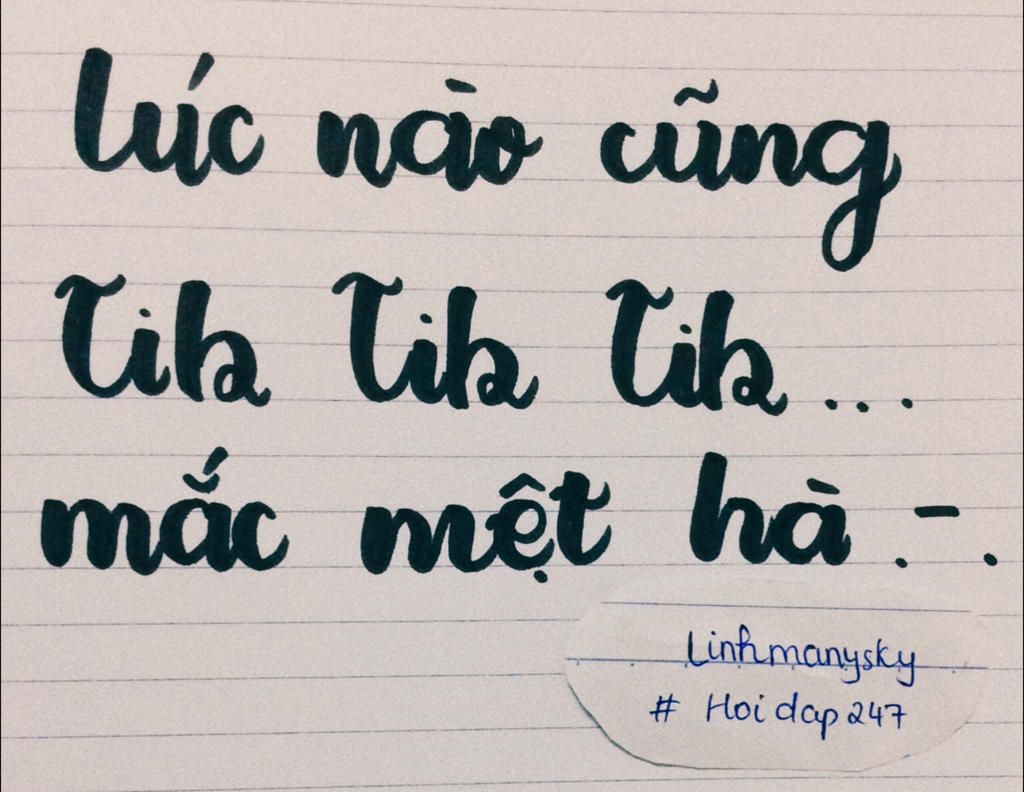 lúc nào cũng
Tik Tik Tik...
mắc mệt hà .-.
Linhmanysky
# Hoidap247